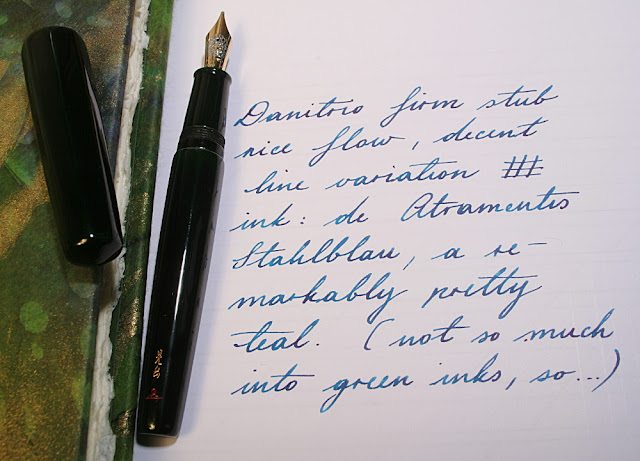 Danitrio firm stub
nice flow, decent
line variation ###
ink: de Atramentis
Stahlblau, a re-
markably pretty
teal. (not so much
into green inks, so...)